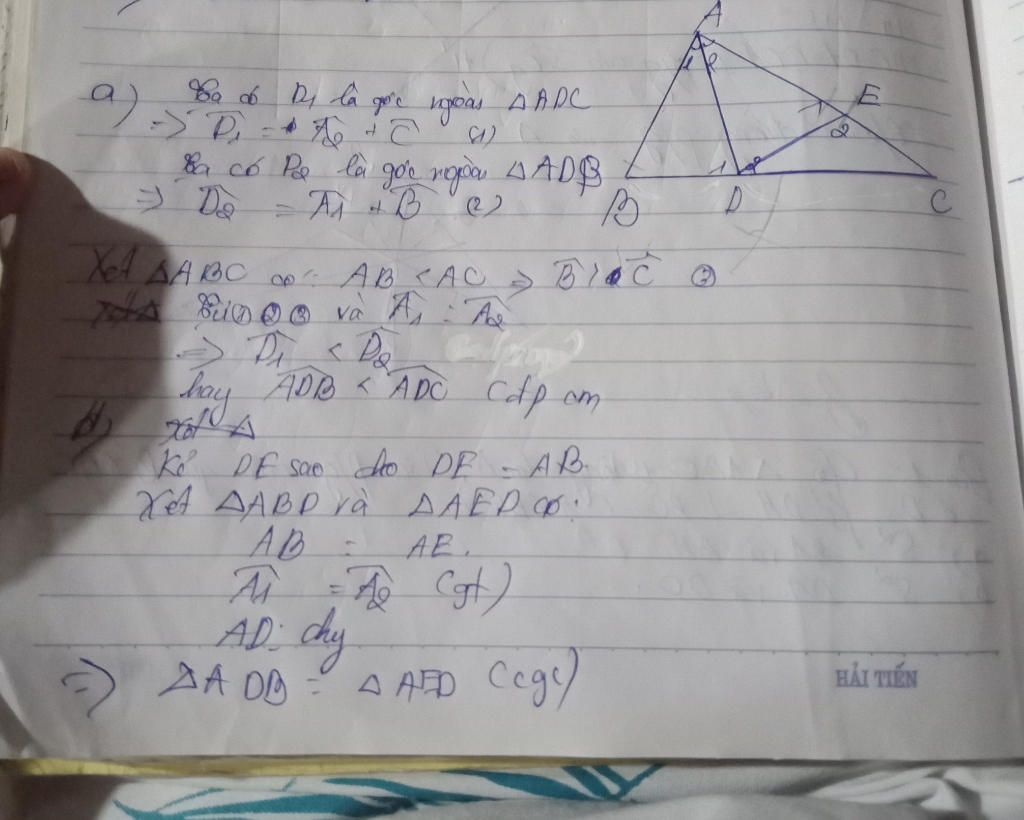 A
1 2
E
1
2
B
1 2
D
C
a) Ta có D1 là góc ngoài △ADC
=> D1 = A2 + C (1)
Ta có D2 là góc ngoài △ADB
=> D2 = A1 + B (2)
Xét △ABC có: AB < AC => B > C ③
Từ ① ② ③ và A1 = A2
=> D1 < D2
hay ADB < ADC (đpcm
b) Xét △
Kẻ DE sao cho DE = AB.
Xét △ABD và △AED có:
AB = AE.
A1 = A2 (gt)
AD: chg
=> △ADB = △AED (cgc)
HẢI TIẾN